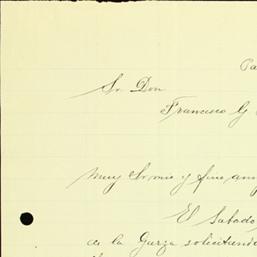 Pa
Sr. Don
Francisco G
Muy Sr mio y fino am
El Sabado
de la Garza solicitando